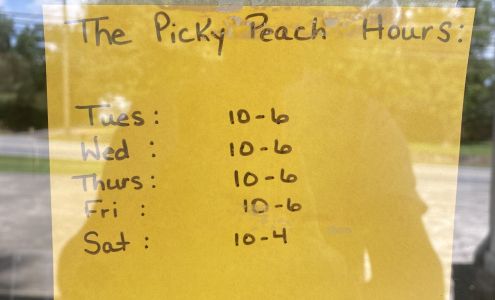 The Picky Peach Hours:
Tues: 10-6
Wed : 10-6
Thurs: 10-6
Fri : 10-6
Sat : 10-4